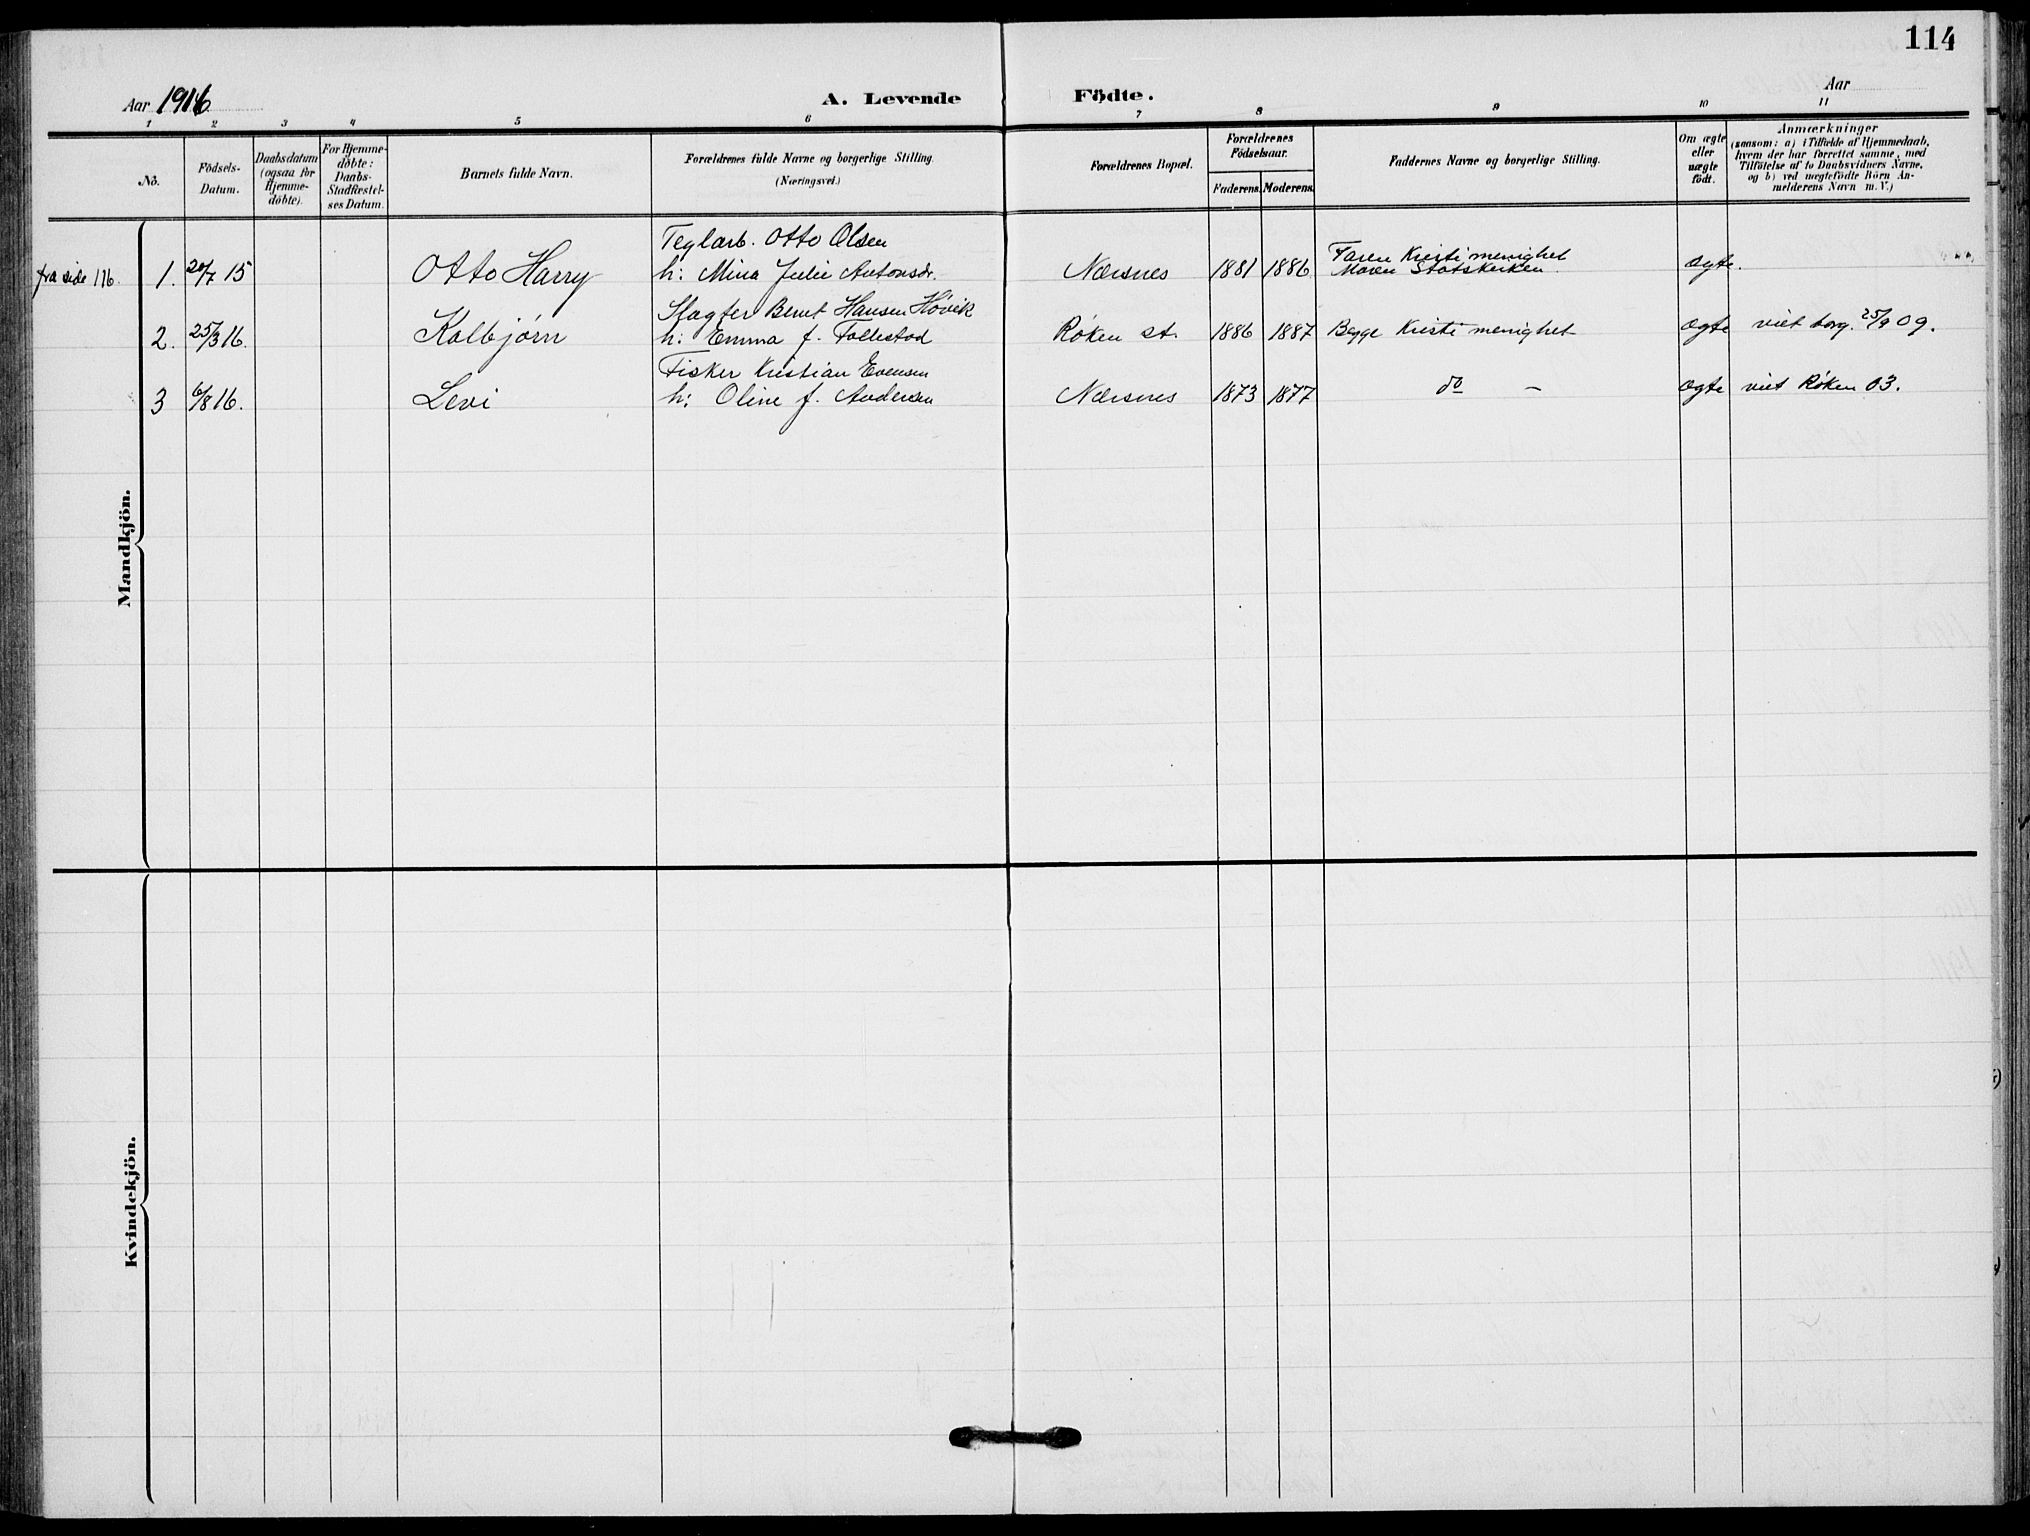 114
Aar 1916.
A. Levende Födte.
Aar
1 2 3 4 5 6 7 8 9 10 11
No.
Födsels-
Datum.
Daabsdatum
(ogsaa for
Hjemme-
döbte).
For Hjemme-
döbte:
Daabs-
Stadfæstel-
ses Datum.
Barnets fulde Navn.
Forældrenes fulde Navne og borgerlige Stilling.
(Næringsvei.)
Forældrenes Bopæl.
Forældrenes
Födselsaar.
Faderens. Moderens.
Faddernes Navne og borgerlige Stilling.
Om ægte
eller
uægte
födt.
Anmærkninger
(saasom: a) i Tilfælde af Hjemmedaab,
hvem der har forrettet samme, med
Tilföielse af to Daabsvidners Navne,
og b) ved uægtefödte Börn An-
melderens Navn m. V.)
Mandkjön.
fra side 116.
1. 20/7 15 Otto Harry
Teglarb. Otto Olsen
h: Mina Julie Antonsdr.
Nærsnes 1881 1886
Faren Kristi menighet
Moren Statskirken.
ægte.
2. 25/3 16. Kolbjørn
Slagter Bernt Hansen Høvik
h: Emma f. Follestad
Røken st. 1886 1887 Begge Kristi menighet ægte viet borg. 25/9 09.
3 6/8 16. Levi
Fisker Kristian Evensen
h: Oline f. Andersen
Nærsnes 1873 1877 do — ægte viet Røken 03.
Kvindekjön.